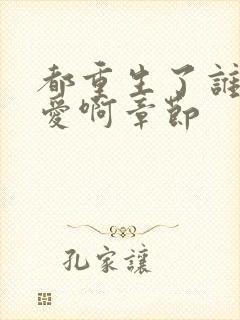 都重生了誰
愛啊章節
孔家讓